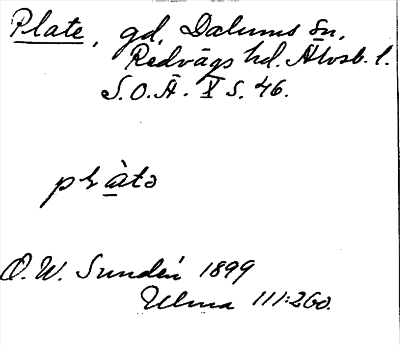 Plate, gd, Dalums sn,
Redvägs hd. Älvsb. l.
S.O.Ä. X S. 46.
plàtə
O. W. Sundén 1899
Ulma 111:260.